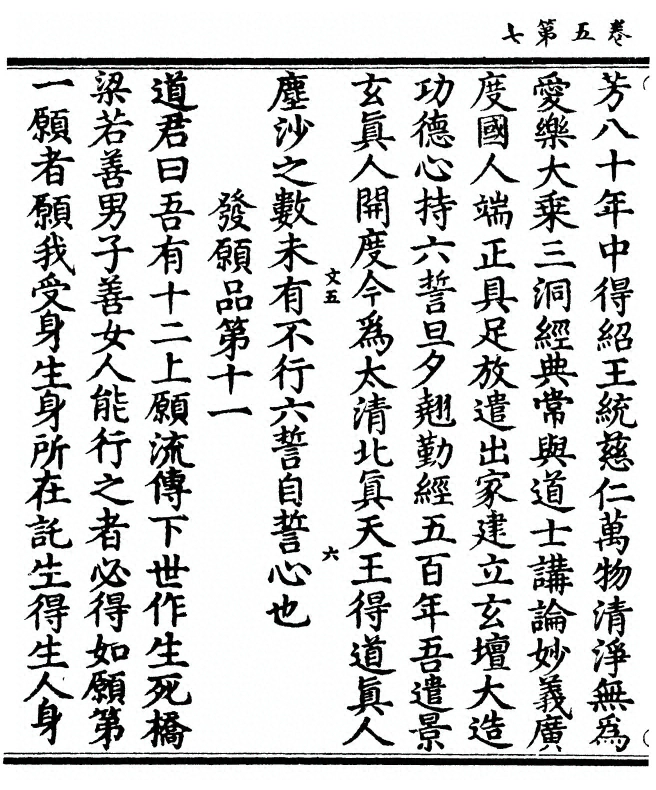 卷五第七
芳八十年中得紹王統慈仁萬物清淨無為
愛樂大乘三洞經典常與道士講論妙義廣
度國人端正具足放遣出家建立玄壇大造
功德心持六誓旦夕翹勤經五百年吾遣景
玄真人開度今為太清北真天王得道真人
文五
六
塵沙之數未有不行六誓自誓心也
發願品第十一
道君曰吾有十二上願流傳下世作生死橋
梁若善男子善女人能行之者必得如願第
一願者願我受身生身所在託生得生人身